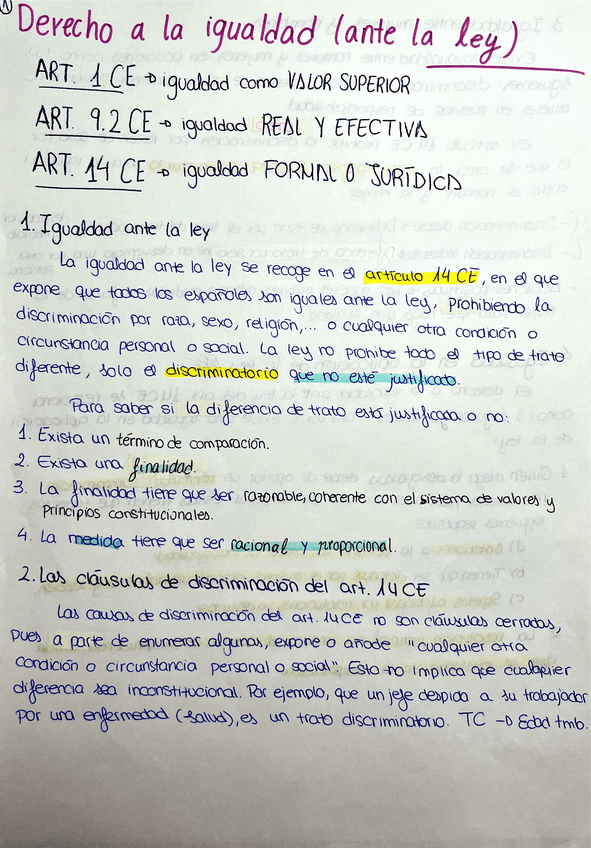 1
Derecho a la igualdad (ante la ley)
ART. 1 CE → igualdad como VALOR SUPERIOR
ART. 9.2 CE → igualdad REAL Y EFECTIVA
ART. 14 CE → igualdad FORMAL O JURÍDICA
1. Igualdad ante la ley
La igualdad ante la ley se recoge en el artículo 14 CE, en el que
expone, que todos los españoles son iguales ante la ley, prohibiendo la
discriminación por raza, sexo, religión,... o cualquier otra condición o
circunstancia personal o social. La ley no prohibe todo el tipo de trato
diferente, solo el discriminatorio que no esté justificado.
Para saber si la diferencia de trato está justificada o no:
1. Exista un término de comparación.
2. Exista una finalidad.
3. La finalidad tiene que ser razonable, coherente con el sistema de valores y
principios constitucionales.
4. La medida tiene que ser racional y proporcional.
2. Las cláusulas de discriminación del art. 14 CE
Las causas de discriminación del art. 14 CE no son cláusulas cerradas,
pues a parte de enumerar algunas, expone o añade "cualquier otra
condición o circunstancia personal o social". Esto no implica que cualquier
diferencia sea inconstitucional. Por ejemplo, que un jefe despida a su trabajador
por una enfermedad (→salud), es un trato discriminatorio. TC → Edad tmb.